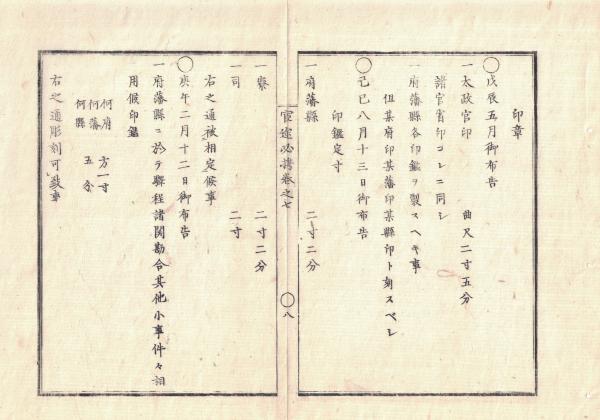 印章
〇戊辰五月御布告
一太政官印 曲尺二寸五分
諸官省印コレニ同シ
一府藩縣各印鑑ヲ製スヘキ事
但其府印某藩印某縣印ト刻スベシ
〇己巳八月十三日御布告
印鑑定寸
一府藩縣 二寸二分
官途必携巻之七 〇八
一寮 二寸二分
一司 二寸
右之通被相定候事
〇庚午二月十二日御布告
一府藩縣ニ於テ驛程諸関勘合其他小事件々相
用候印鑑
何府 方一寸
何藩 五分
何縣
右之通彫刻可致事